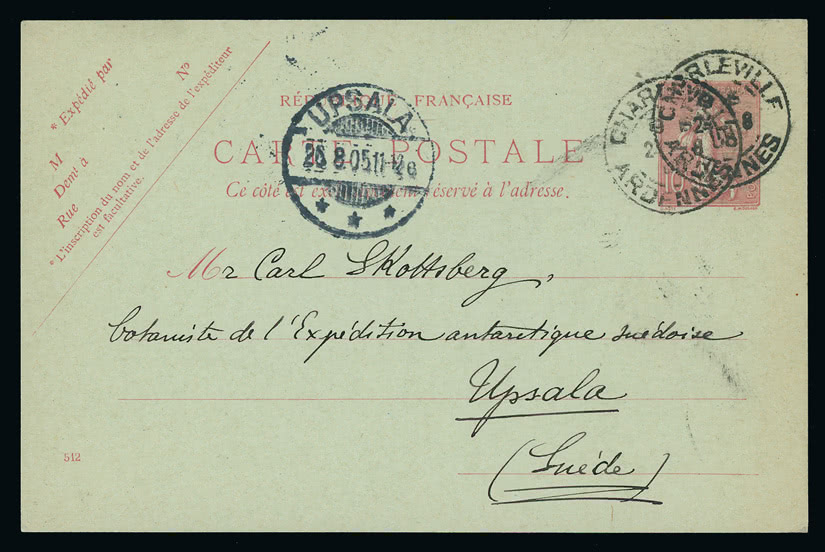 * Expédié par
Nº
M
Demt à
Rue
* L'inscription du nom et de l'adresse de l'expéditeur
est facultative.
RÉPUBLIQUE FRANÇAISE
CARTE POSTALE
Ce côté est exclusivement réservé à l'adresse.
UPSALA
28 8 05 11-12
CHARLEVILLE
ARDENNES
CHARLEVILLE
ARDENNES
10
Mr Carl Skottsberg,
botaniste de l'Expédition antarctique suédoise
Upsala
(Suéde)
512